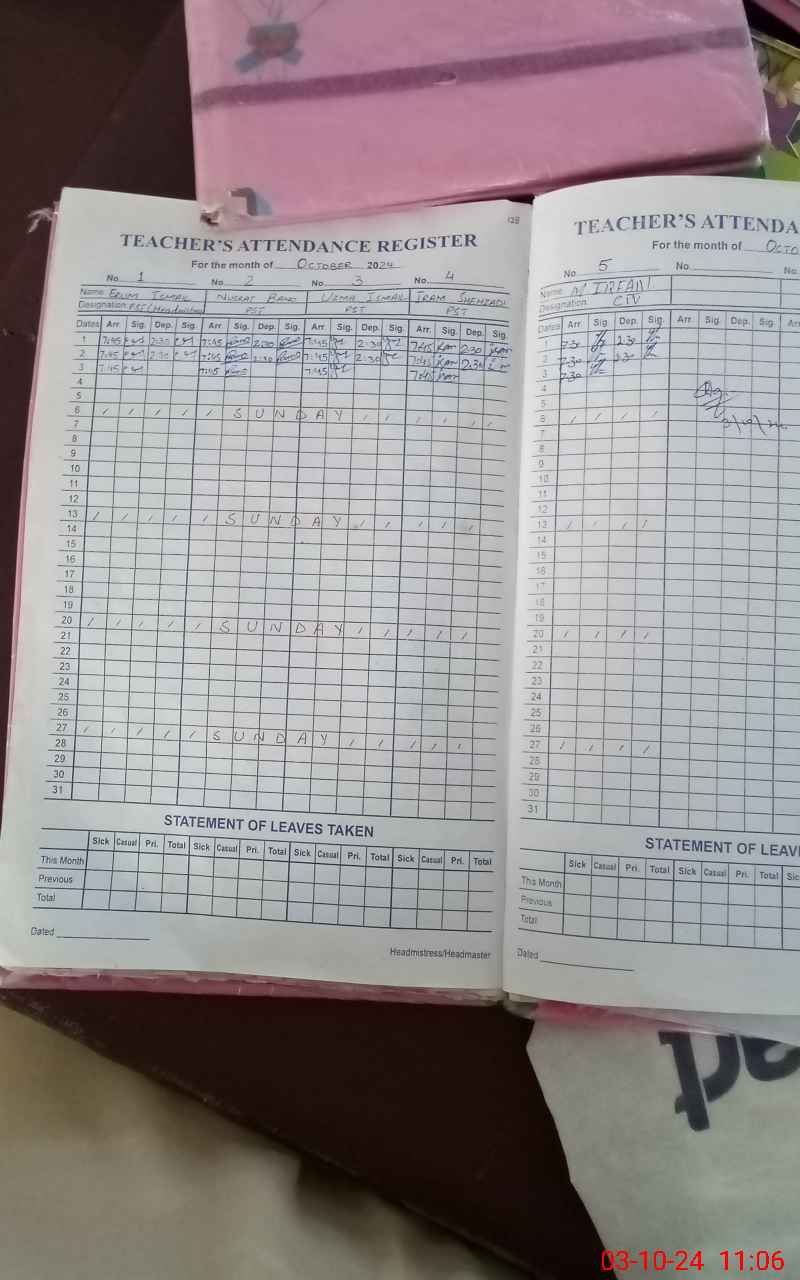 128
TEACHER'S ATTENDANCE REGISTER
For the month of OCTOBER 2024
No. 1 No. 2 No. 3 No. 4
Name ERUM ISMAIL NUSRAT BANO UZMA ISMAIL IRAM SHEHZADI
Designation PST/Headmistress PST PST PST
Dates Arr. Sig. Dep. Sig. Arr. Sig. Dep. Sig. Arr. Sig. Dep. Sig. Arr. Sig. Dep. Sig.
1 7:45 2:30 7:45 2:30 7:45 2:30 7:45 2:30
2 7:45 2:30 7:45 2:30 7:45 2:30 7:45 2:30
3 7:45 7:45 7:45 7:45
4
5
6 / / / / / S U N D A Y / / / / / /
7
8
9
10
11
12
13 / / / / / S U N D A Y / / / / / /
14
15
16
17
18
19
20 / / / / / S U N D A Y / / / / /
21
22
23
24
25
26
27 / / / / / S U N D A Y / / / / /
28
29
30
31
STATEMENT OF LEAVES TAKEN
Sick Casual Pri. Total Sick Casual Pri. Total Sick Casual Pri. Total Sick Casual Pri. Total
This Month
Previous
Total
Dated
Headmistress/Headmaster
TEACHER'S ATTENDA
For the month of OCTO
No 5 No. No.
Name M IRFAN
Designation CIV
Dates Arr. Sig. Dep. Sig. Arr. Sig. Dep. Sig. Arr.
1 7:30 2:30
2 7:30 2:30
3 7:30
4
5
6 / / / /
3/10/24
7
8
9
10
11
12
13 / / / /
14
15
16
17
18
19
20 / / / /
21
22
23
24
25
26
27 / / / /
28
29
30
31
STATEMENT OF LEAV
Sick Casual Pri. Total Sick Casual Pri. Total Sic
This Month
Previous
Total
Dated
03-10-24 11:06